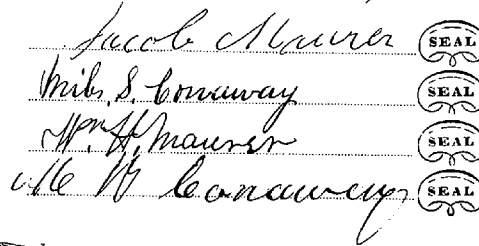 Jacob Maurer SEAL
S. Conaway SEAL
Wm. H. Maurer SEAL
W Conaway SEAL